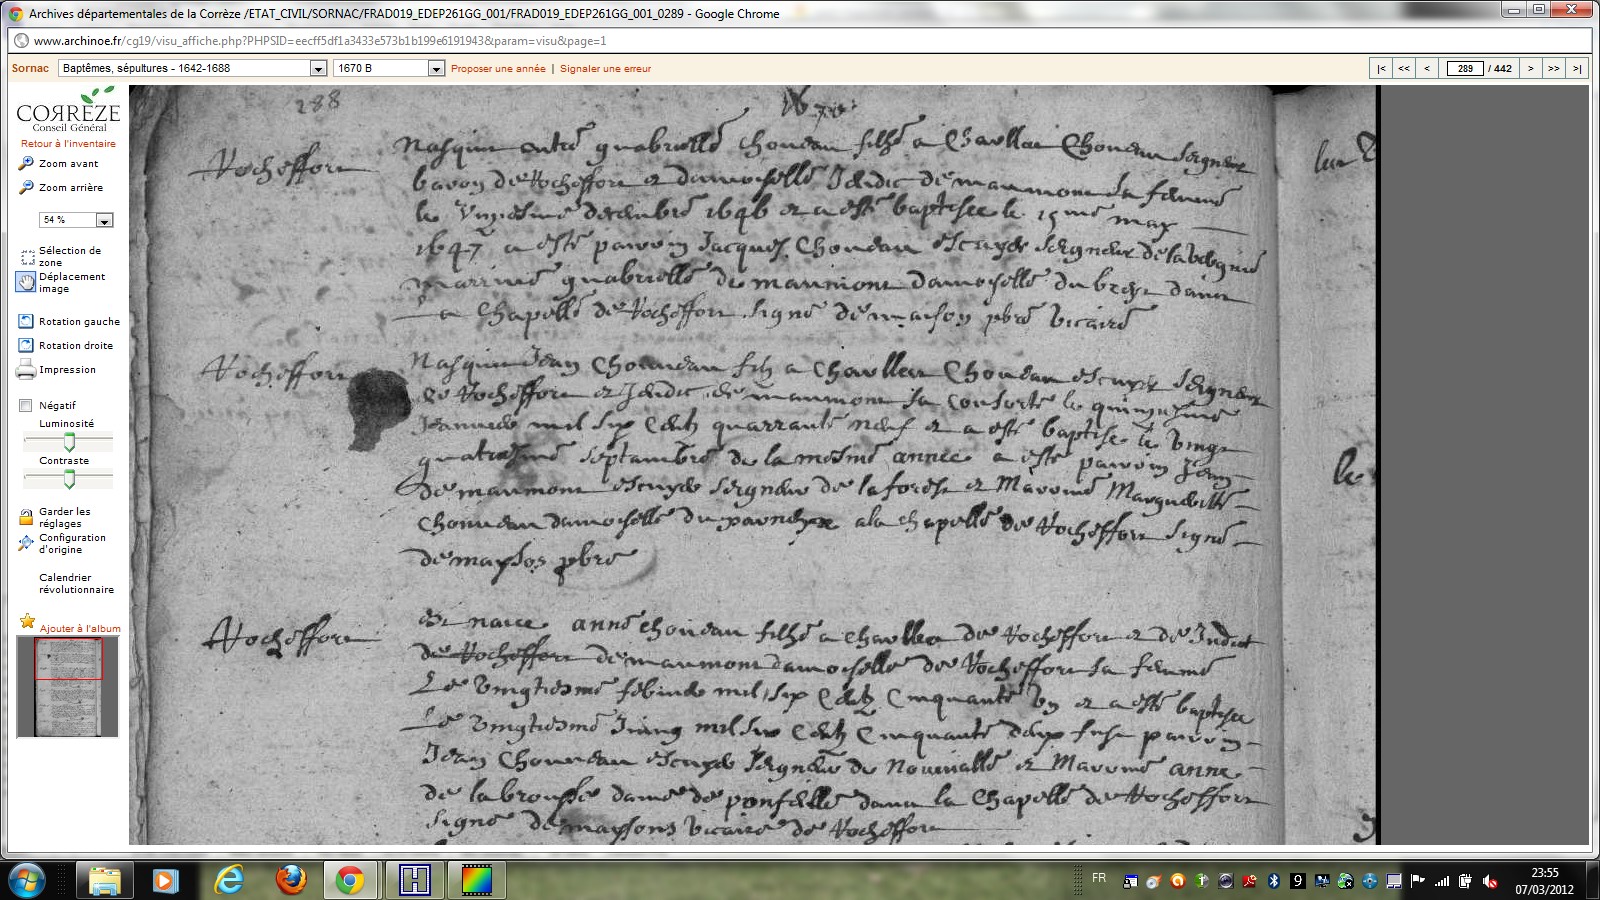 Archives départementales de la Corrèze /ETAT_CIVIL/SORNAC/FRAD019_EDEP261GG_001/FRAD019_EDEP261GG_001_0289 - Google Chrome
www.archinoe.fr/cg19/visu_affiche.php?PHPSID=eecff5df1a3433e573b1b199e6191943&param=visu&page=1
Sornac Baptêmes, sépultures - 1642-1688 1670 B Proposer une année | Signaler une erreur |< << < 289 / 442 > >> >|
CORRÈZE
Conseil Général
Retour à l'inventaire
Zoom avant
Zoom arrière
54 %
Sélection de zone
Déplacement image
Rotation gauche
Rotation droite
Impression
Négatif
Luminosité
Contraste
Garder les réglages
Configuration d'origine
Calendrier révolutionnaire
Ajouter à l'album
288
1670
Rocheffort
Nasquit gabrielle Chouvau filhe a Charlles Chouvau seigneur
baron de Rocheffort et damoiselle Judic de maumont sa femme
le decembre 1646 et a esté baptisee le 15me may
1647 a esté parrin Jacques Chouvau escuyer seigneur
marrine guabrielle de maumont damoiselle du dans
la Chapelle de Rocheffort signe demaison pbre vicaire
Rocheffort
Nasquit Jean Chouveau filz a Charlles Chouvau escuyer seigneur
de Rocheffort et Judic de maumont sa consorte le quinziesme
Janvier mil six cens quarrante neuf et a esté baptise le vingt
quatriesme septambre de la mesme annee a esté parrin Jean
de maumont escuyer seigneur de la forest et Marrine Marguerite
Chouveau damoiselle du a la chapelle de Rocheffort signe
demaysos pbre
Rocheffort
Est nacee anne chouvau filhe a charlles de Rocheffort et de Judict
de Rocheffort de maumont damoiselle de Rocheffort sa femme
Le vingtiesme febvrier mil six cens cinquante un et a esté baptisee
Le vingtiesme mil six cens cinquante deux fust parrin
Jean Chouveau escuyer seigneur de et Marrine anne
de la brousse dame de dans la Chapelle de Rocheffort
signe demaysons vicaire de Rocheffort
FR
9
23:55
07/03/2012